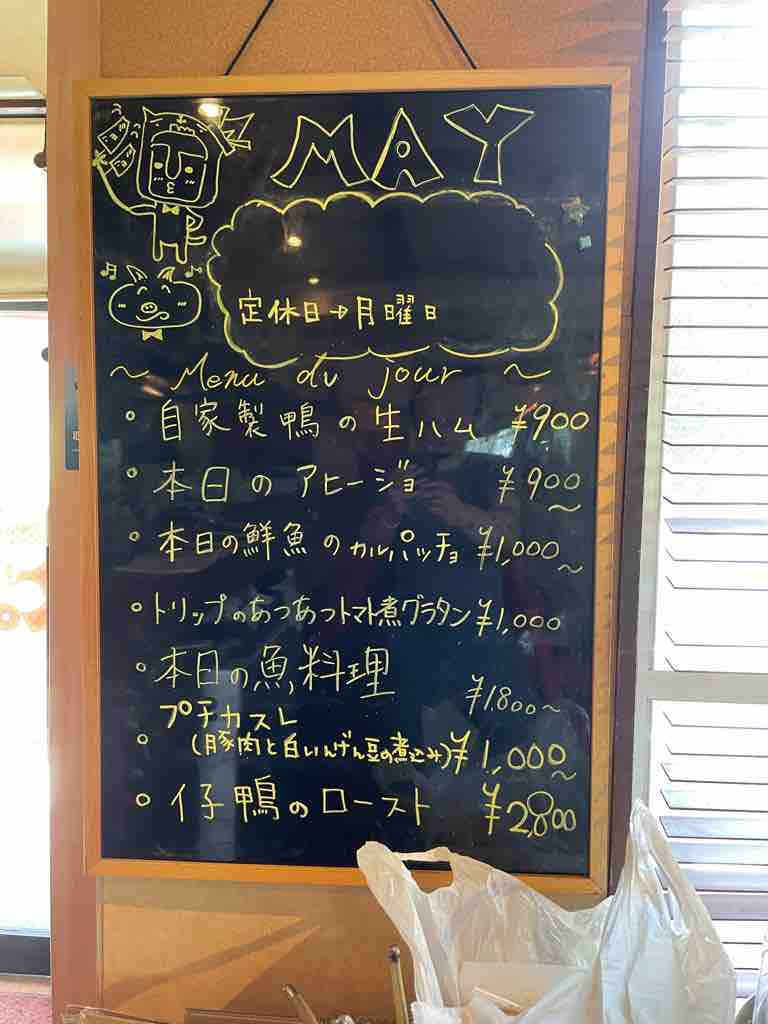 MAY
定休日→月曜日
～ Menu du jour ～
○ 自家製鴨の生ハム ¥900
○ 本日のアヒージョ ¥900～
○ 本日の鮮魚のカルパッチョ ¥1,000～
○ トリップのあつあつトマト煮グラタン ¥1,000
○ 本日の魚料理 ¥1,800～
○ プチカスレ
(豚肉と白いんげん豆の煮込み) ¥1,000～
○ 仔鴨のロースト ¥2,800